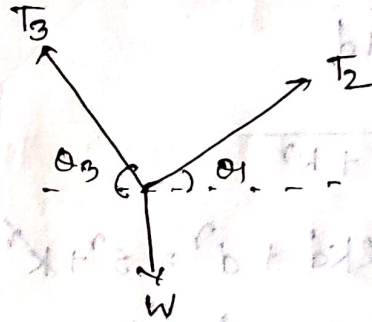 T3
T2
θ3 θ1
W